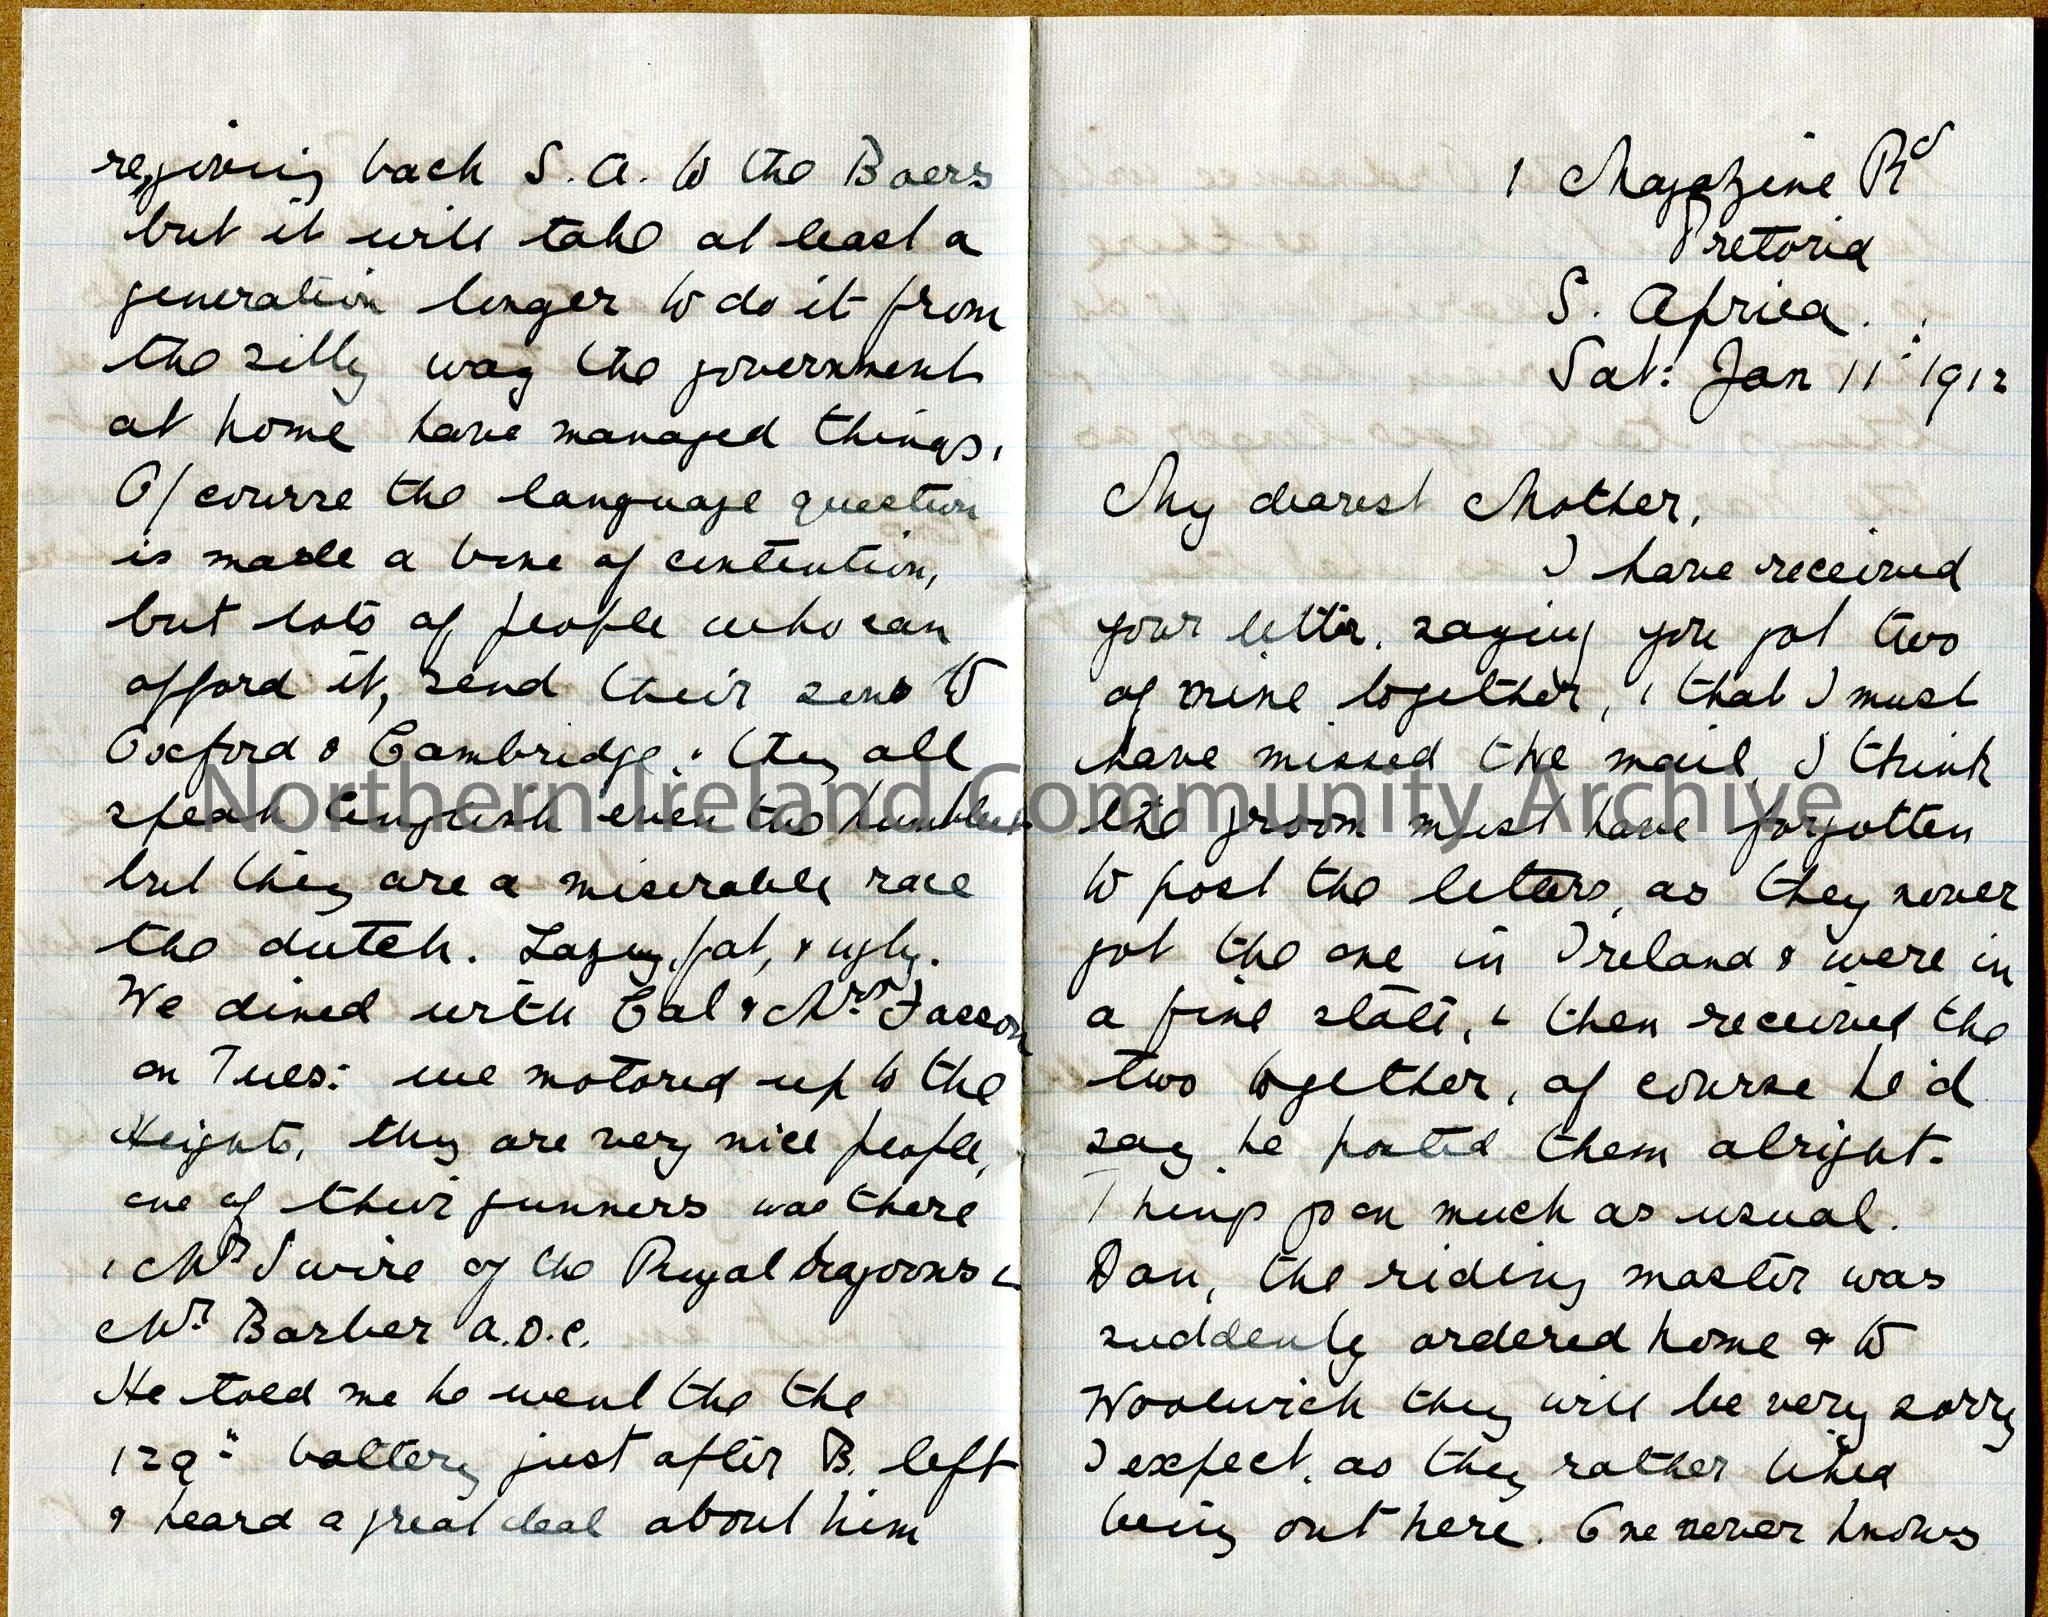 1 Magazine Rd
Pretoria
S. Africa.
Sat: Jan 11: 1912
My dearest Mother,
I have received
your letter, saying you got two
of mine together, & that I must
have missed the mail, I think
the groom must have forgotten
to post the letters, as they never
got the one in Ireland & were in
a fine state, & then received the
two together, of course he'd
say he posted them alright.
Things go on much as usual.
Dan, the riding master was
suddenly ordered home & to
Woolwich they will be very sorry
I expect, as they rather liked
being out here. One never knows
regiving back S.A. to the Boers
but it will take at least a
generation longer to do it from
the silly way the government
at home have managed things.
Of course the language question
is made a bone of contention,
but lots of people who can
afford it, send their sons to
Oxford & Cambridge, & they all
speak English even the humblest
but they are a miserable race
the dutch. Lazy, fat, & ugly.
We dined with Col & Mrs Fasson
on Tues: we motored up to the
Heights, they are very nice people,
one of their gunners was there
& Mr Swire of the Royal Dragoons &
Mr Barber A.D.C.
He told me he went the the
129: battery just after B. left
& heard a great deal about him
Northern Ireland Community Archive